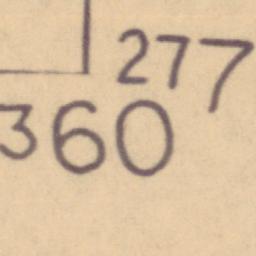 277
360